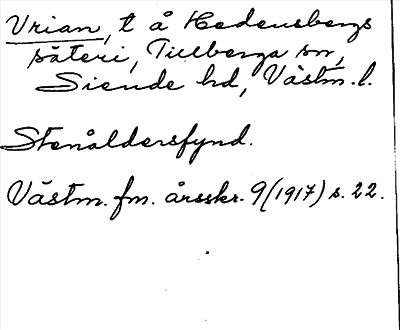 Vrian, t å Hedensbergs
säteri, Tillberga sn,
Siende hd, Västm. l.
Stenåldersfynd.
Västm. fm. årsskr. 9 (1917) s. 22.